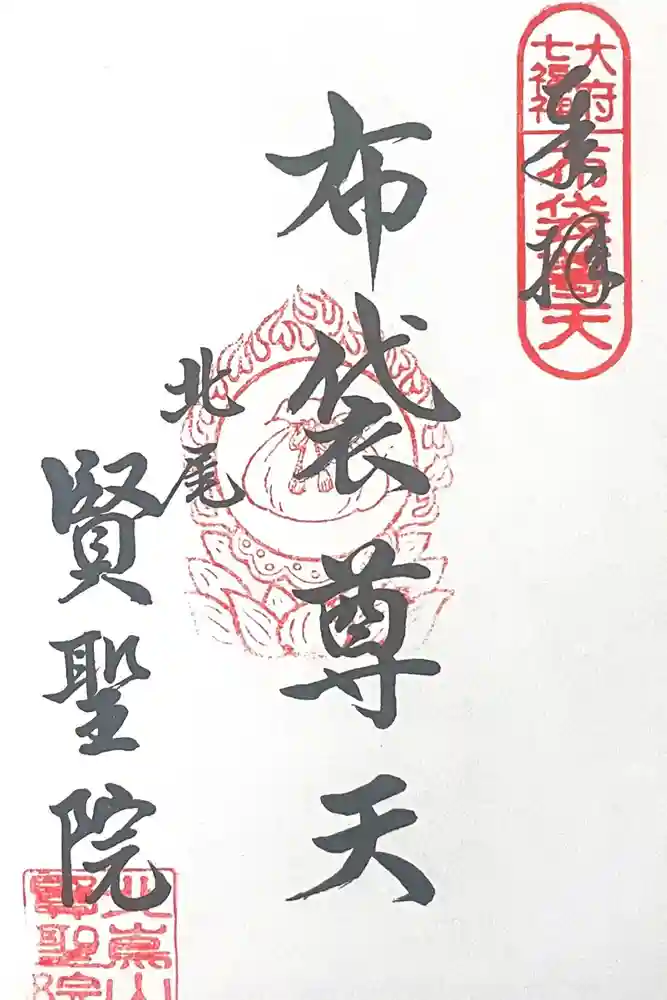 大府
七福神
布袋尊天
奉拝
布袋尊天
北尾
賢聖院
北嵩山
賢聖院